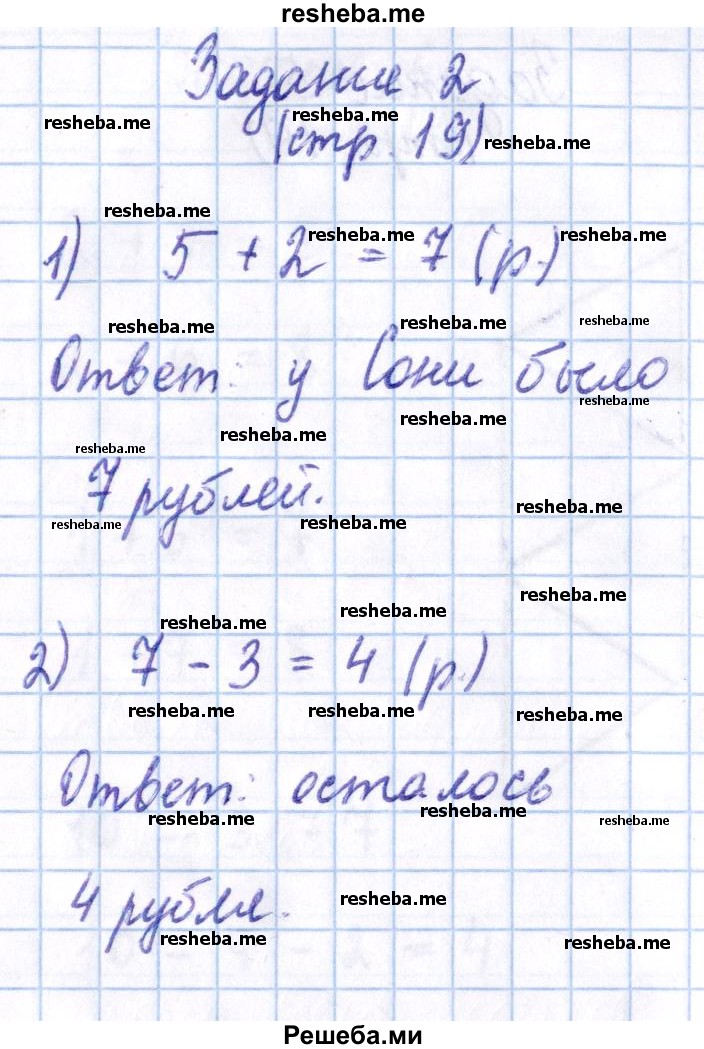 resheba.me
Задание 2
resheba.me resheba.me
(стр. 19) resheba.me
resheba.me
1) 5 + 2 = 7 (р.)
resheba.me resheba.me
resheba.me resheba.me resheba.me
Ответ: у Сони было
resheba.me
resheba.me resheba.me
resheba.me
7 рублей.
resheba.me
resheba.me resheba.me
resheba.me
resheba.me resheba.me
2) 7 - 3 = 4 (р.)
resheba.me resheba.me resheba.me
Ответ: осталось
resheba.me resheba.me resheba.me
4 рубля.
resheba.me
resheba.me resheba.me
Решеба.ми